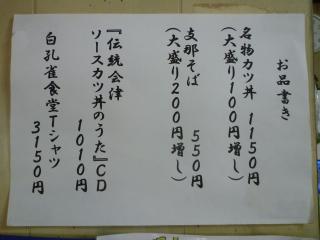 お品書き
名物カツ丼 1150円
（大盛り100円増し）
支那そば 550円
（大盛り200円増し）
『伝統会津
ソースカツ丼のうた』CD
1010円
白孔雀食堂Tシャツ
3150円